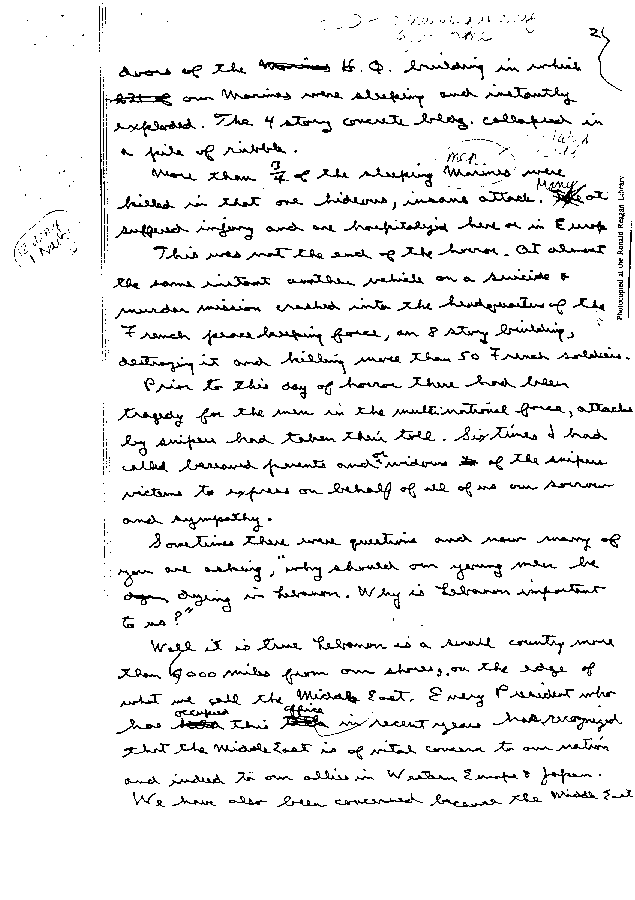 2
doors of the Marines H.Q. building in which
271 of our Marines were sleeping and instantly
exploded. The 4 story concrete bldg. collapsed in
a pile of rubble.
men
More than 3/4 of the sleeping Marines were
Many
killed in that one hideous, insane attack. at
suffered injury and are hospitalized here or in Europ
This was not the end of the horror. At almost
the same instant another vehicle on a suicide &
murder mission crashed into the headquarters of the
French peacekeeping force, an 8 story building,
destroying it and killing more than 50 French soldiers.
Prior to this day of horror there had been
tragedy for the men in the multinational force, attacks
by snipers had taken their toll. Six times I had
called bereaved parents and or widows of the snipers
victims to express on behalf of all of us our sorrow
and sympathy.
Sometimes there were questions and now many of
you are asking, "why should our young men be
dying in Lebanon. Why is Lebanon important
to us?"
Well it is true Lebanon is a small country more
than 000 miles from our shores, on the edge of
what we call the Middle East. Every President who
occupied office
has held this in recent years has recognized
that the Middle East is of vital concern to our nation
and indeed to our allies in Western Europe & Japan.
We have also been concerned because the Middle East
Photocopied at the Ronald Reagan Library